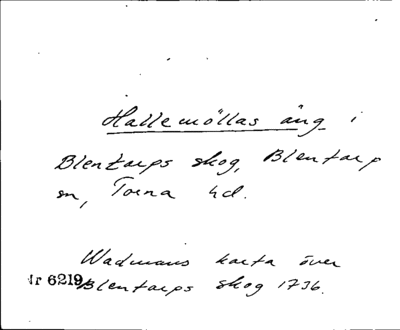 Hallemöllas äng i
Blentarps skog, Blentarp
sn, Torna hd.
Wadmans karta över
Nr 6219 Blentarps skog 1736.